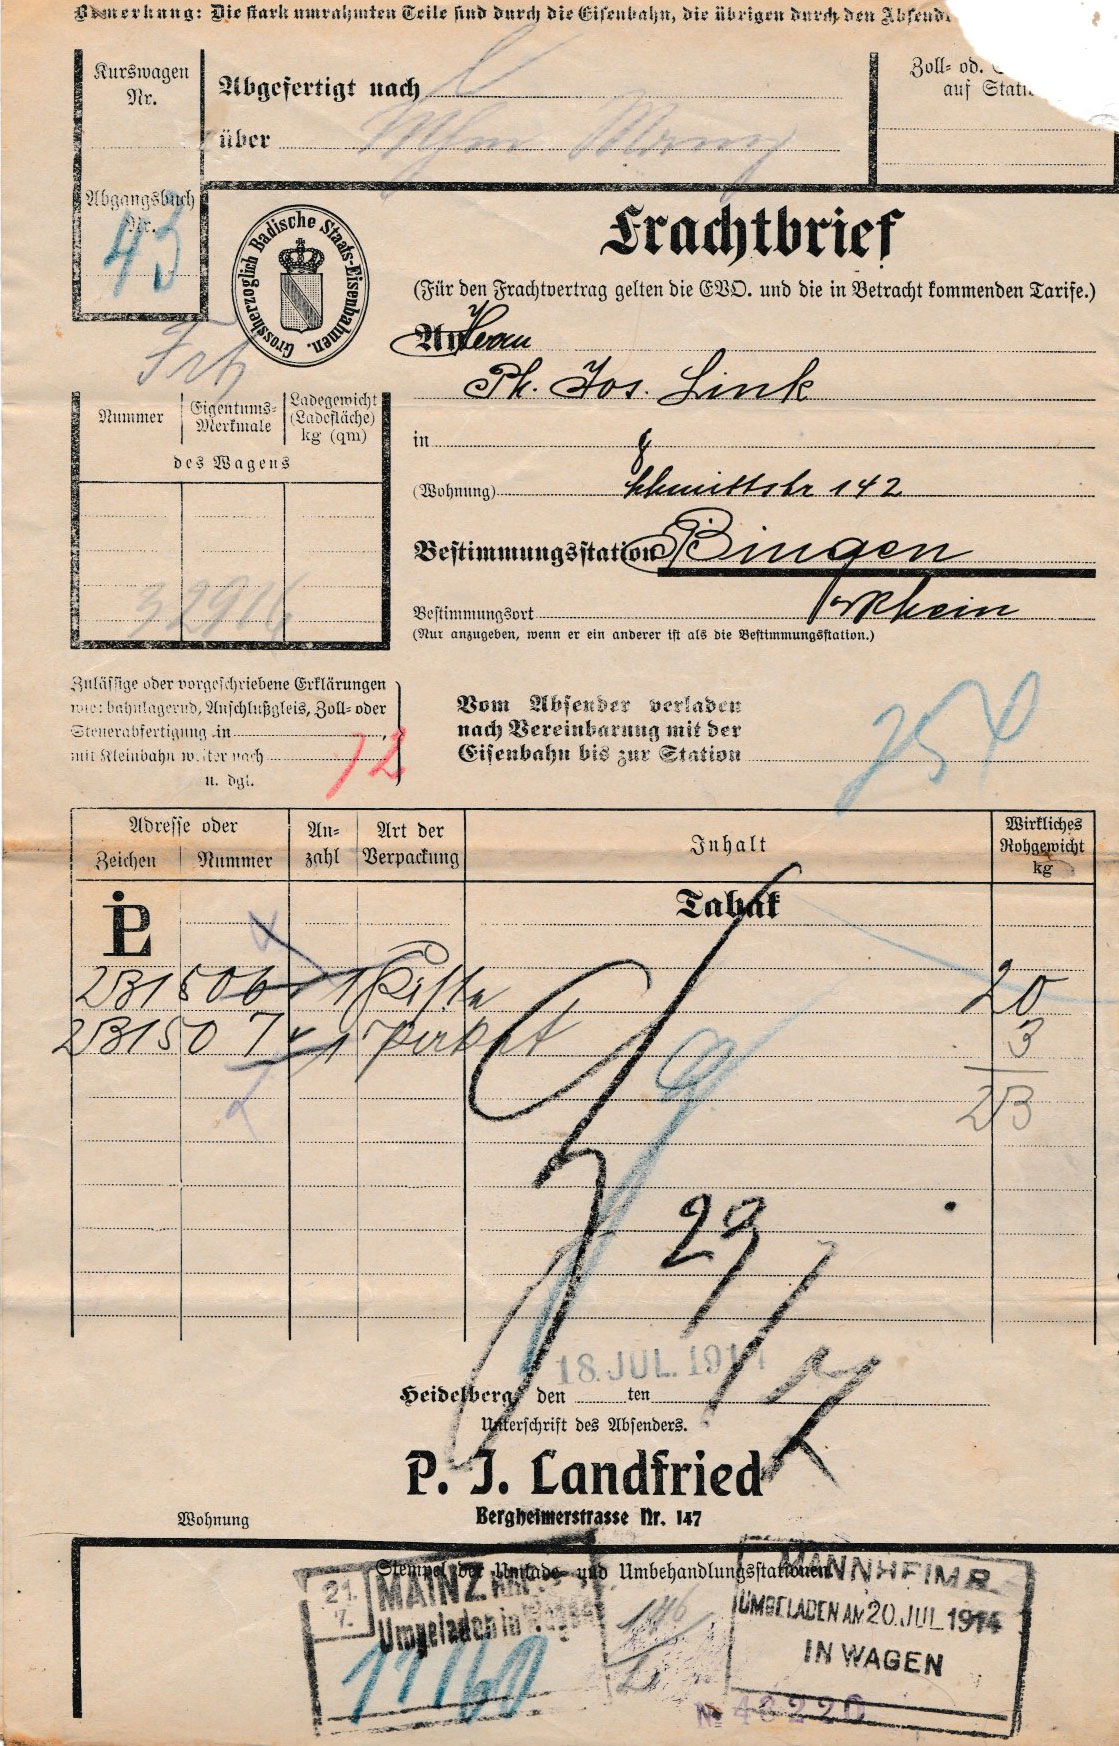 Bemerkung: Die stark umrahmten Teile sind durch die Eisenbahn, die übrigen durch den Absend
Kurswagen
Nr.
Abgefertigt nach
über
Zoll- od.
auf Stati
Abgangsbuch
Nr.
43
Grossherzoglich Badische Staats-Eisenbahnen.
Frachtbrief
(Für den Frachtvertrag gelten die EVO. und die in Betracht kommenden Tarife.)
An Herrn
Ph. Jos. Link
in
(Wohnung) Schmittstr 142
Bestimmungsstation Bingen
Bestimmungsort a/Rhein
(Nur anzugeben, wenn er ein anderer ist als die Bestimmungsstation.)
Frb
Nummer
Eigentums-
Merkmale
Ladegewicht
(Ladefläche)
kg (qm)
des Wagens
32916
Zulässige oder vorgeschriebene Erklärungen
wie: bahnlagernd, Anschlußgleis, Zoll- oder
Steuerabfertigung in
mit Kleinbahn weiter nach
u. dgl.
12
Vom Absender verladen
nach Vereinbarung mit der
Eisenbahn bis zur Station
Adresse oder
Zeichen
Nummer
An-
zahl
Art der
Verpackung
Inhalt
Wirkliches
Rohgewicht
kg
PL
Tabak
2B1506 1 Kiste 20
2B1507 1 Paket 3
23
29/7
18. JUL. 1914
Heidelberg, den ten
Unterschrift des Absenders.
P. J. Landfried
Bergheimerstrasse Nr. 147
Wohnung
Stempel der Umlade- und Umbehandlungsstationen
21.
7.
MAINZ
Umgeladen in Wagen
11160
146
MANNHEIM R.
UMGELADEN AM 20. JUL 1914
IN WAGEN
No 48220